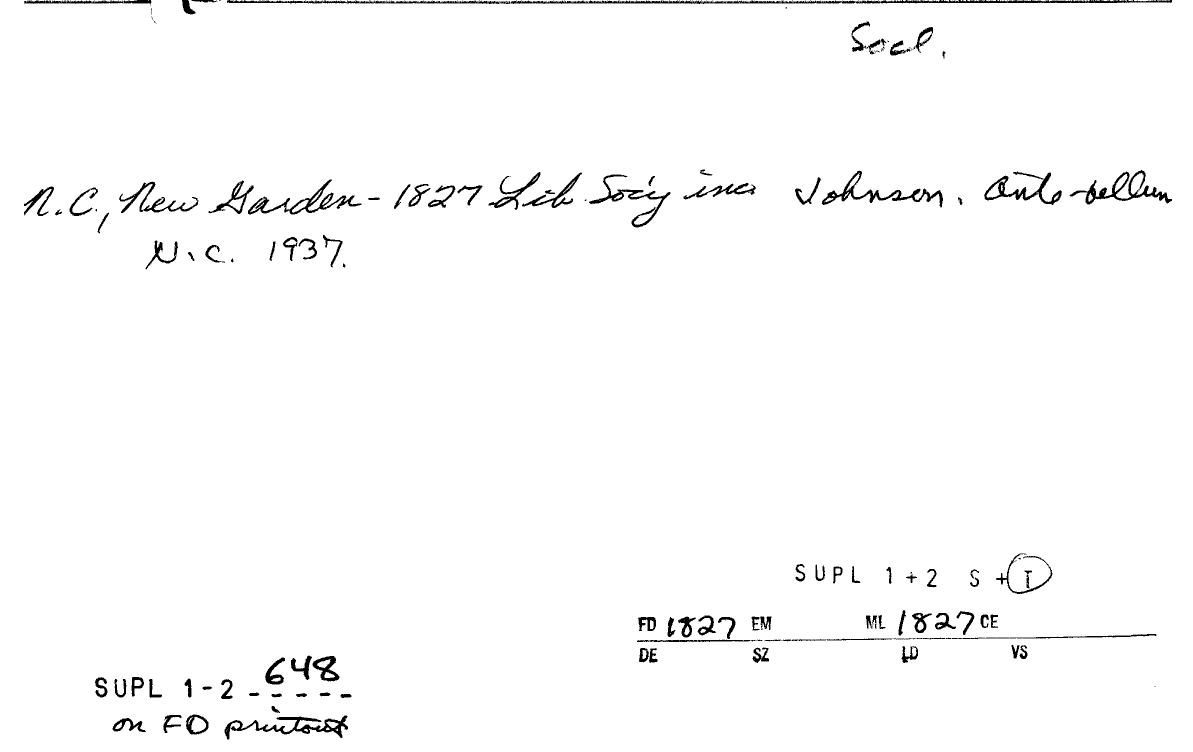 Socl.
N.C., New Garden - 1827 Lib Soc'y inc. Johnson. Ante-bellum
N.C. 1937.
SUPL 1+2 S + T
FD 1827 EM ML 1827 CE
DE SZ LD VS
SUPL 1-2 - 648
on FD printout